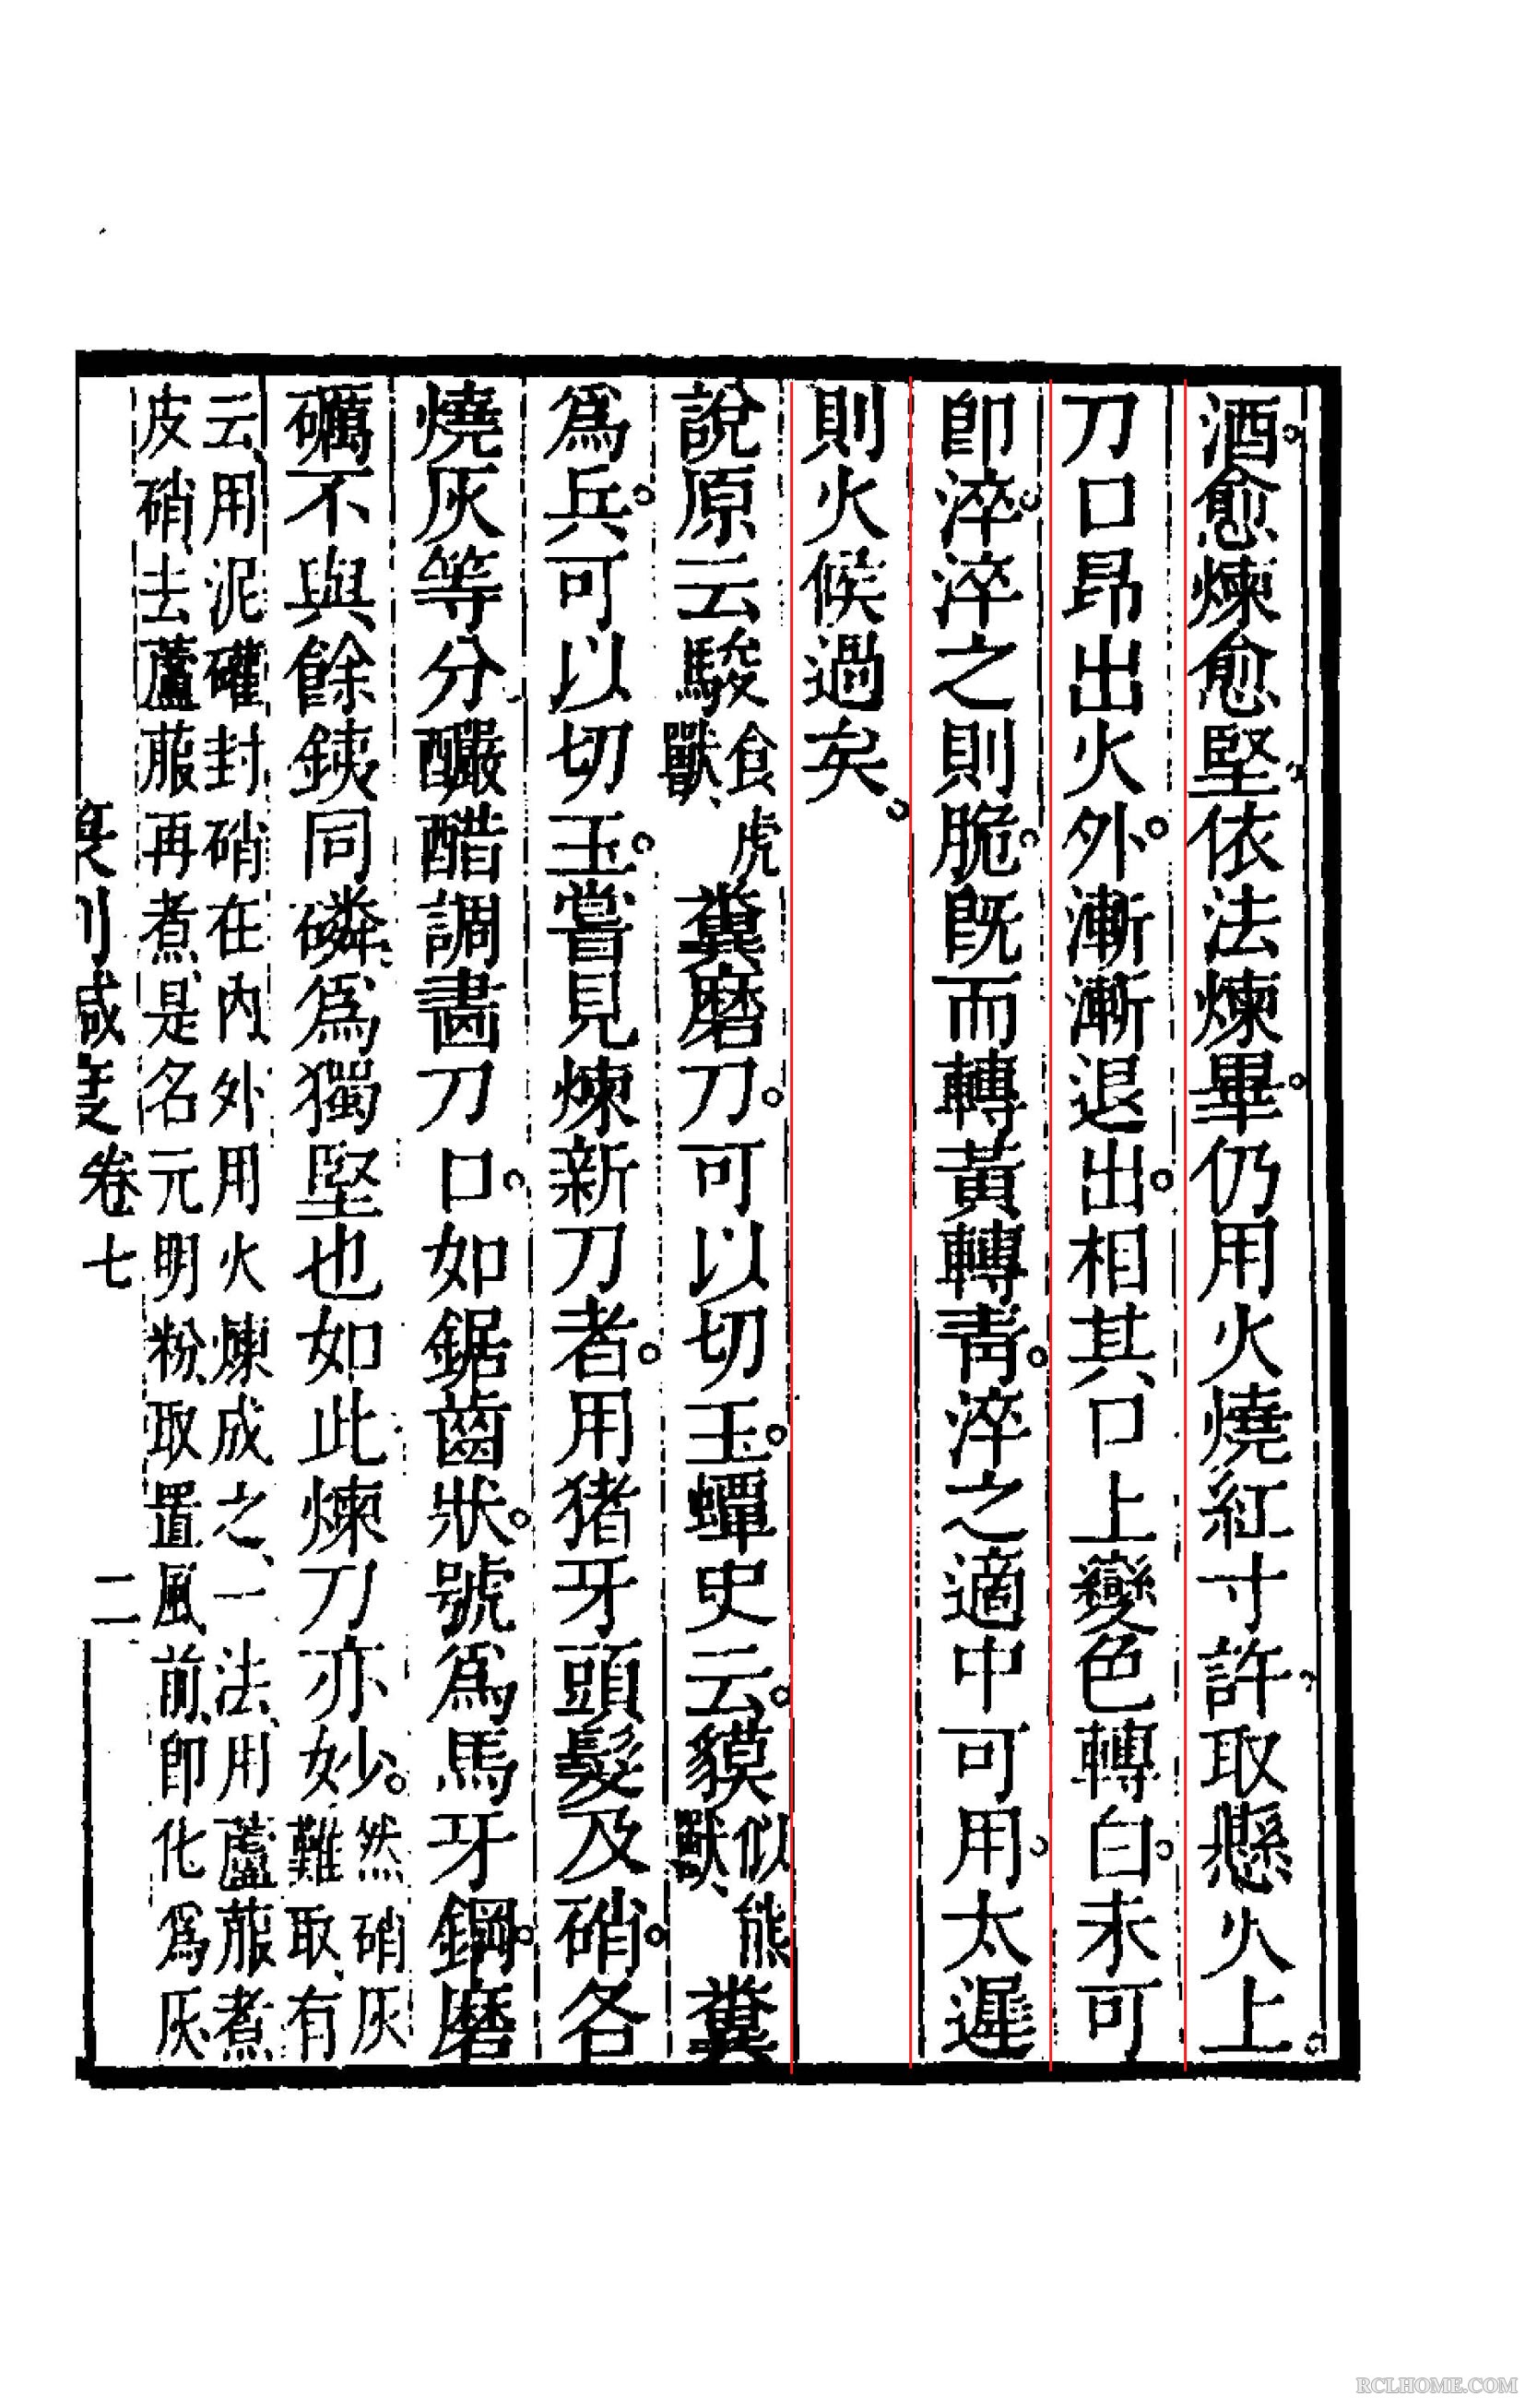 酒。愈煉愈堅、依法煉畢。仍用火燒紅寸許、取懸火上。
刀口昂出火外。漸漸退出。相其口上變色轉白、未可
卽淬、淬之則脆、既而轉黃轉靑。淬之適中可用、太遲
則火候過矣。
說原云駿食虎獸、糞磨刀。可以切玉。蟫史云。貘似熊獸、糞
爲兵。可以切玉。嘗見煉新刀者。用猪牙頭髮及硝。各
燒灰等分、釅醋調畵刀口、如鋸齒狀。號爲馬牙鋼。磨
礪不與餘銕同磷、爲獨堅也如此煉刀亦妙。然硝灰難取、有
云、用泥礶封硝在內、外用火煉成之、一法、用蘆菔煮
皮硝、去蘆菔再煮、是名元明粉、取置風前、卽化爲灰
篆刻鍼度卷七 二
RCLHOME.COM